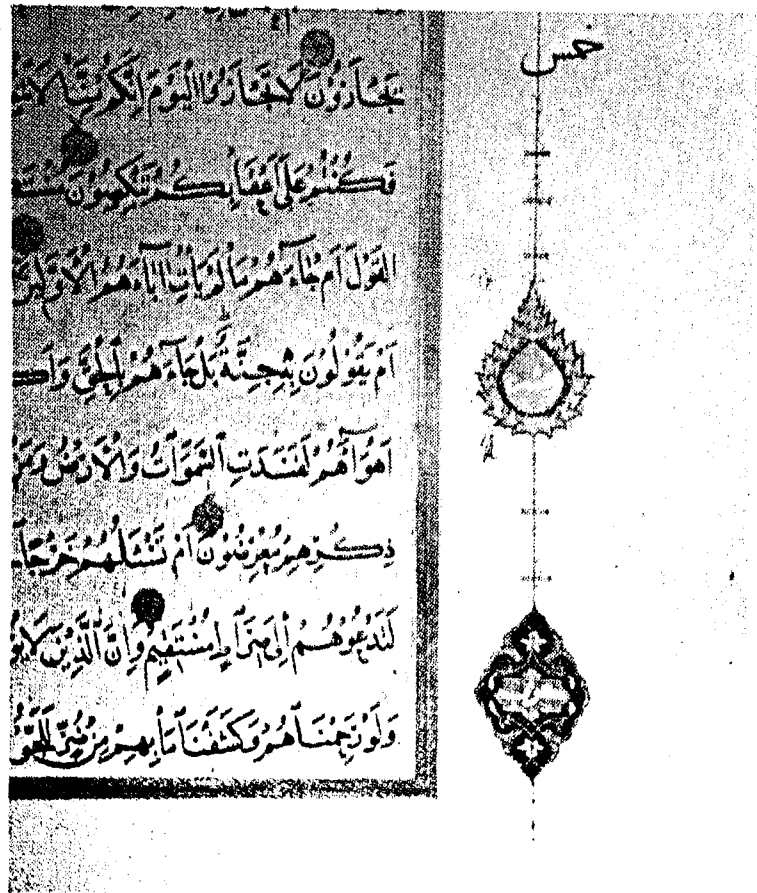 خمس
يجأرون لا تجأروا اليوم انكم منا لا
فكنتم على اعقابكم تنكصون
القول ام جاءهم ما لم يأت اباءهم الاولين
ام يقولون به جنة بل جاءهم بالحق
اهواءهم لفسدت السموات والارض ومن
ذكرهم معرضون ام تسئلهم خرجا
لتدعوهم الى صراط مستقيم وان الذين لا
ولو رحمناهم وكشفنا ما بهم من ضر للجوا